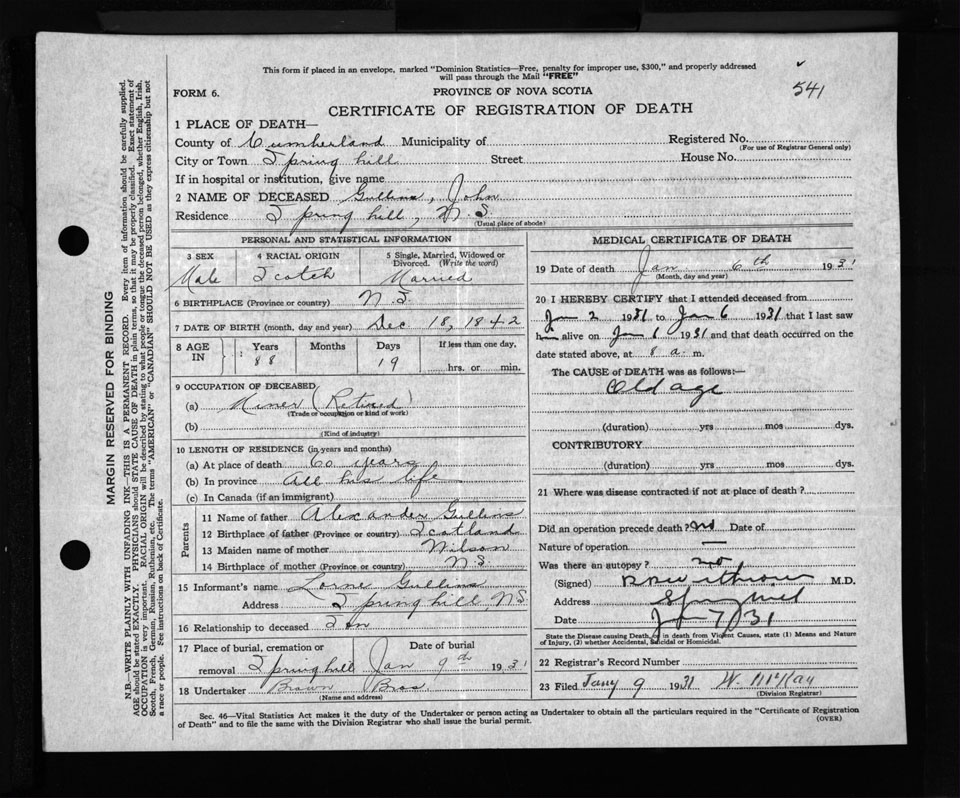 This form if placed in an envelope, marked "Dominion Statistics—Free, penalty for improper use, $300," and properly addressed
will pass through the Mail "FREE"
541
FORM 6.
PROVINCE OF NOVA SCOTIA
CERTIFICATE OF REGISTRATION OF DEATH
1 PLACE OF DEATH—
County of Cumberland Municipality of Registered No.
(For use of Registrar General only)
City or Town Springhill Street House No.
If in hospital or institution, give name
2 NAME OF DECEASED Gullins, John
Residence Springhill, N.S.
(Usual place of abode)
PERSONAL AND STATISTICAL INFORMATION
3 SEX 4 RACIAL ORIGIN 5 Single, Married, Widowed or
Divorced. (Write the word)
Male Scotch Married
6 BIRTHPLACE (Province or country) N.S.
7 DATE OF BIRTH (month, day and year) Dec 18, 1842
8 AGE IN Years Months Days If less than one day,
88 19 hrs. or min.
9 OCCUPATION OF DECEASED
(a) Miner (Retired)
(Trade or occupation or kind of work)
(b)
(Kind of industry)
10 LENGTH OF RESIDENCE (in years and months)
(a) At place of death 60 years
(b) In province All his life
(c) In Canada (if an immigrant)
Parents
11 Name of father Alexander Gullins
12 Birthplace of father (Province or country) Scotland
13 Maiden name of mother Wilson
14 Birthplace of mother (Province or country) N.S.
15 Informant's name Lorne Gullins
Address Springhill, N.S.
16 Relationship to deceased Son
17 Place of burial, cremation or Date of burial
removal Springhill Jan 9th 1931
18 Undertaker Brown Bros
(Name and address)
MEDICAL CERTIFICATE OF DEATH
19 Date of death Jan 6th 1931
(Month, day and year)
20 I HEREBY CERTIFY that I attended deceased from
Jan 2 1931 to Jan 6 1931 that I last saw
him alive on Jan 6 1931 and that death occurred on the
date stated above, at 8 a. m.
The CAUSE of DEATH was as follows:—
Old age
(duration) yrs mos dys.
CONTRIBUTORY
(duration) yrs. mos. dys.
21 Where was disease contracted if not at place of death?
Did an operation precede death? no Date of
Nature of operation —
Was there an autopsy? no
(Signed) M.D.
Address Springhill
Date Jan 7/31
State the Disease causing Death, or in death from Violent Causes, state (1) Means and Nature
of Injury, (2) whether Accidental, Suicidal or Homicidal.
22 Registrar's Record Number
23 Filed Jany 9 1931 W. McKay
(Division Registrar)
Sec. 46—Vital Statistics Act makes it the duty of the Undertaker or person acting as Undertaker to obtain all the particulars required in the "Certificate of Registration
of Death" and to file the same with the Division Registrar who shall issue the burial permit. (OVER)
MARGIN RESERVED FOR BINDING
N.B.—WRITE PLAINLY WITH UNFADING INK—THIS IS A PERMANENT RECORD. Every item of information should be carefully supplied.
AGE should be stated EXACTLY. PHYSICIANS should STATE CAUSE OF DEATH in plain terms, so that it may be properly classified. Exact statement of
OCCUPATION is very important. RACIAL ORIGIN will be described by stating to what people or tongue the deceased person belonged, whether English, Irish,
Scotch, French, German, Russian, Ruthenian, etc. The terms "AMERICAN" or "CANADIAN" SHOULD NOT BE USED as they express citizenship but not
a race or people. See instructions on back of Certificate.